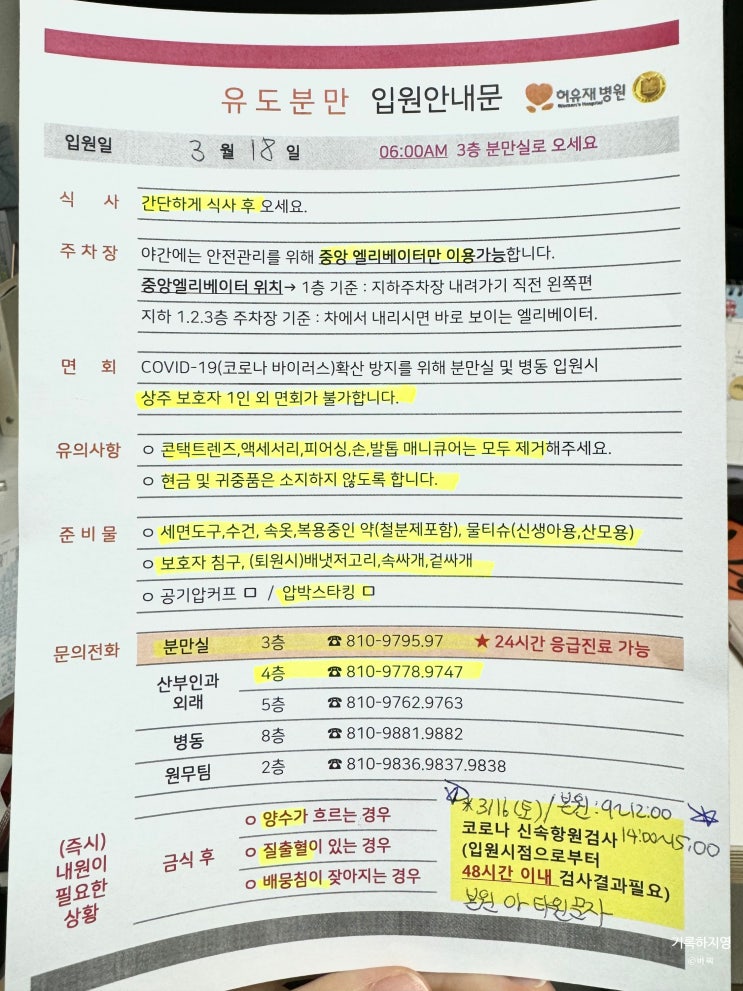 유도분만 입원안내문 허유재병원
Women's Hospital
입원일 3월 18일 06:00AM 3층 분만실로 오세요
식 사 간단하게 식사 후 오세요.
주차장 야간에는 안전관리를 위해 중앙 엘리베이터만 이용가능합니다.
중앙엘리베이터 위치→ 1층 기준 : 지하주차장 내려가기 직전 왼쪽편
지하 1.2.3층 주차장 기준 : 차에서 내리시면 바로 보이는 엘리베이터.
면 회 COVID-19(코로나 바이러스)확산 방지를 위해 분만실 및 병동 입원시
상주 보호자 1인 외 면회가 불가합니다.
유의사항 ㅇ 콘택트렌즈,액세서리,피어싱,손,발톱 매니큐어는 모두 제거해주세요.
ㅇ 현금 및 귀중품은 소지하지 않도록 합니다.
준비물 ㅇ 세면도구,수건, 속옷,복용중인 약(철분제포함), 물티슈(신생아용,산모용)
ㅇ 보호자 침구, (퇴원시)배냇저고리,속싸개,겉싸개
ㅇ 공기압커프 ㅁ / 압박스타킹 ㅁ
문의전화 분만실 3층 ☎ 810-9795.97 ★ 24시간 응급진료 가능
산부인과 외래 4층 ☎ 810-9778.9747
5층 ☎ 810-9762.9763
병동 8층 ☎ 810-9881.9882
원무팀 2층 ☎ 810-9836.9837.9838
(즉시)
내원이
필요한
상황
금식 후
ㅇ 양수가 흐르는 경우
ㅇ 질출혈이 있는 경우
ㅇ 배뭉침이 잦아지는 경우
*3/16(토)/본원:9~12:00
코로나 신속항원검사 14:00~15:00
(입원시점으로부터
48시간 이내 검사결과필요)
본원 or 타원
기록하지영